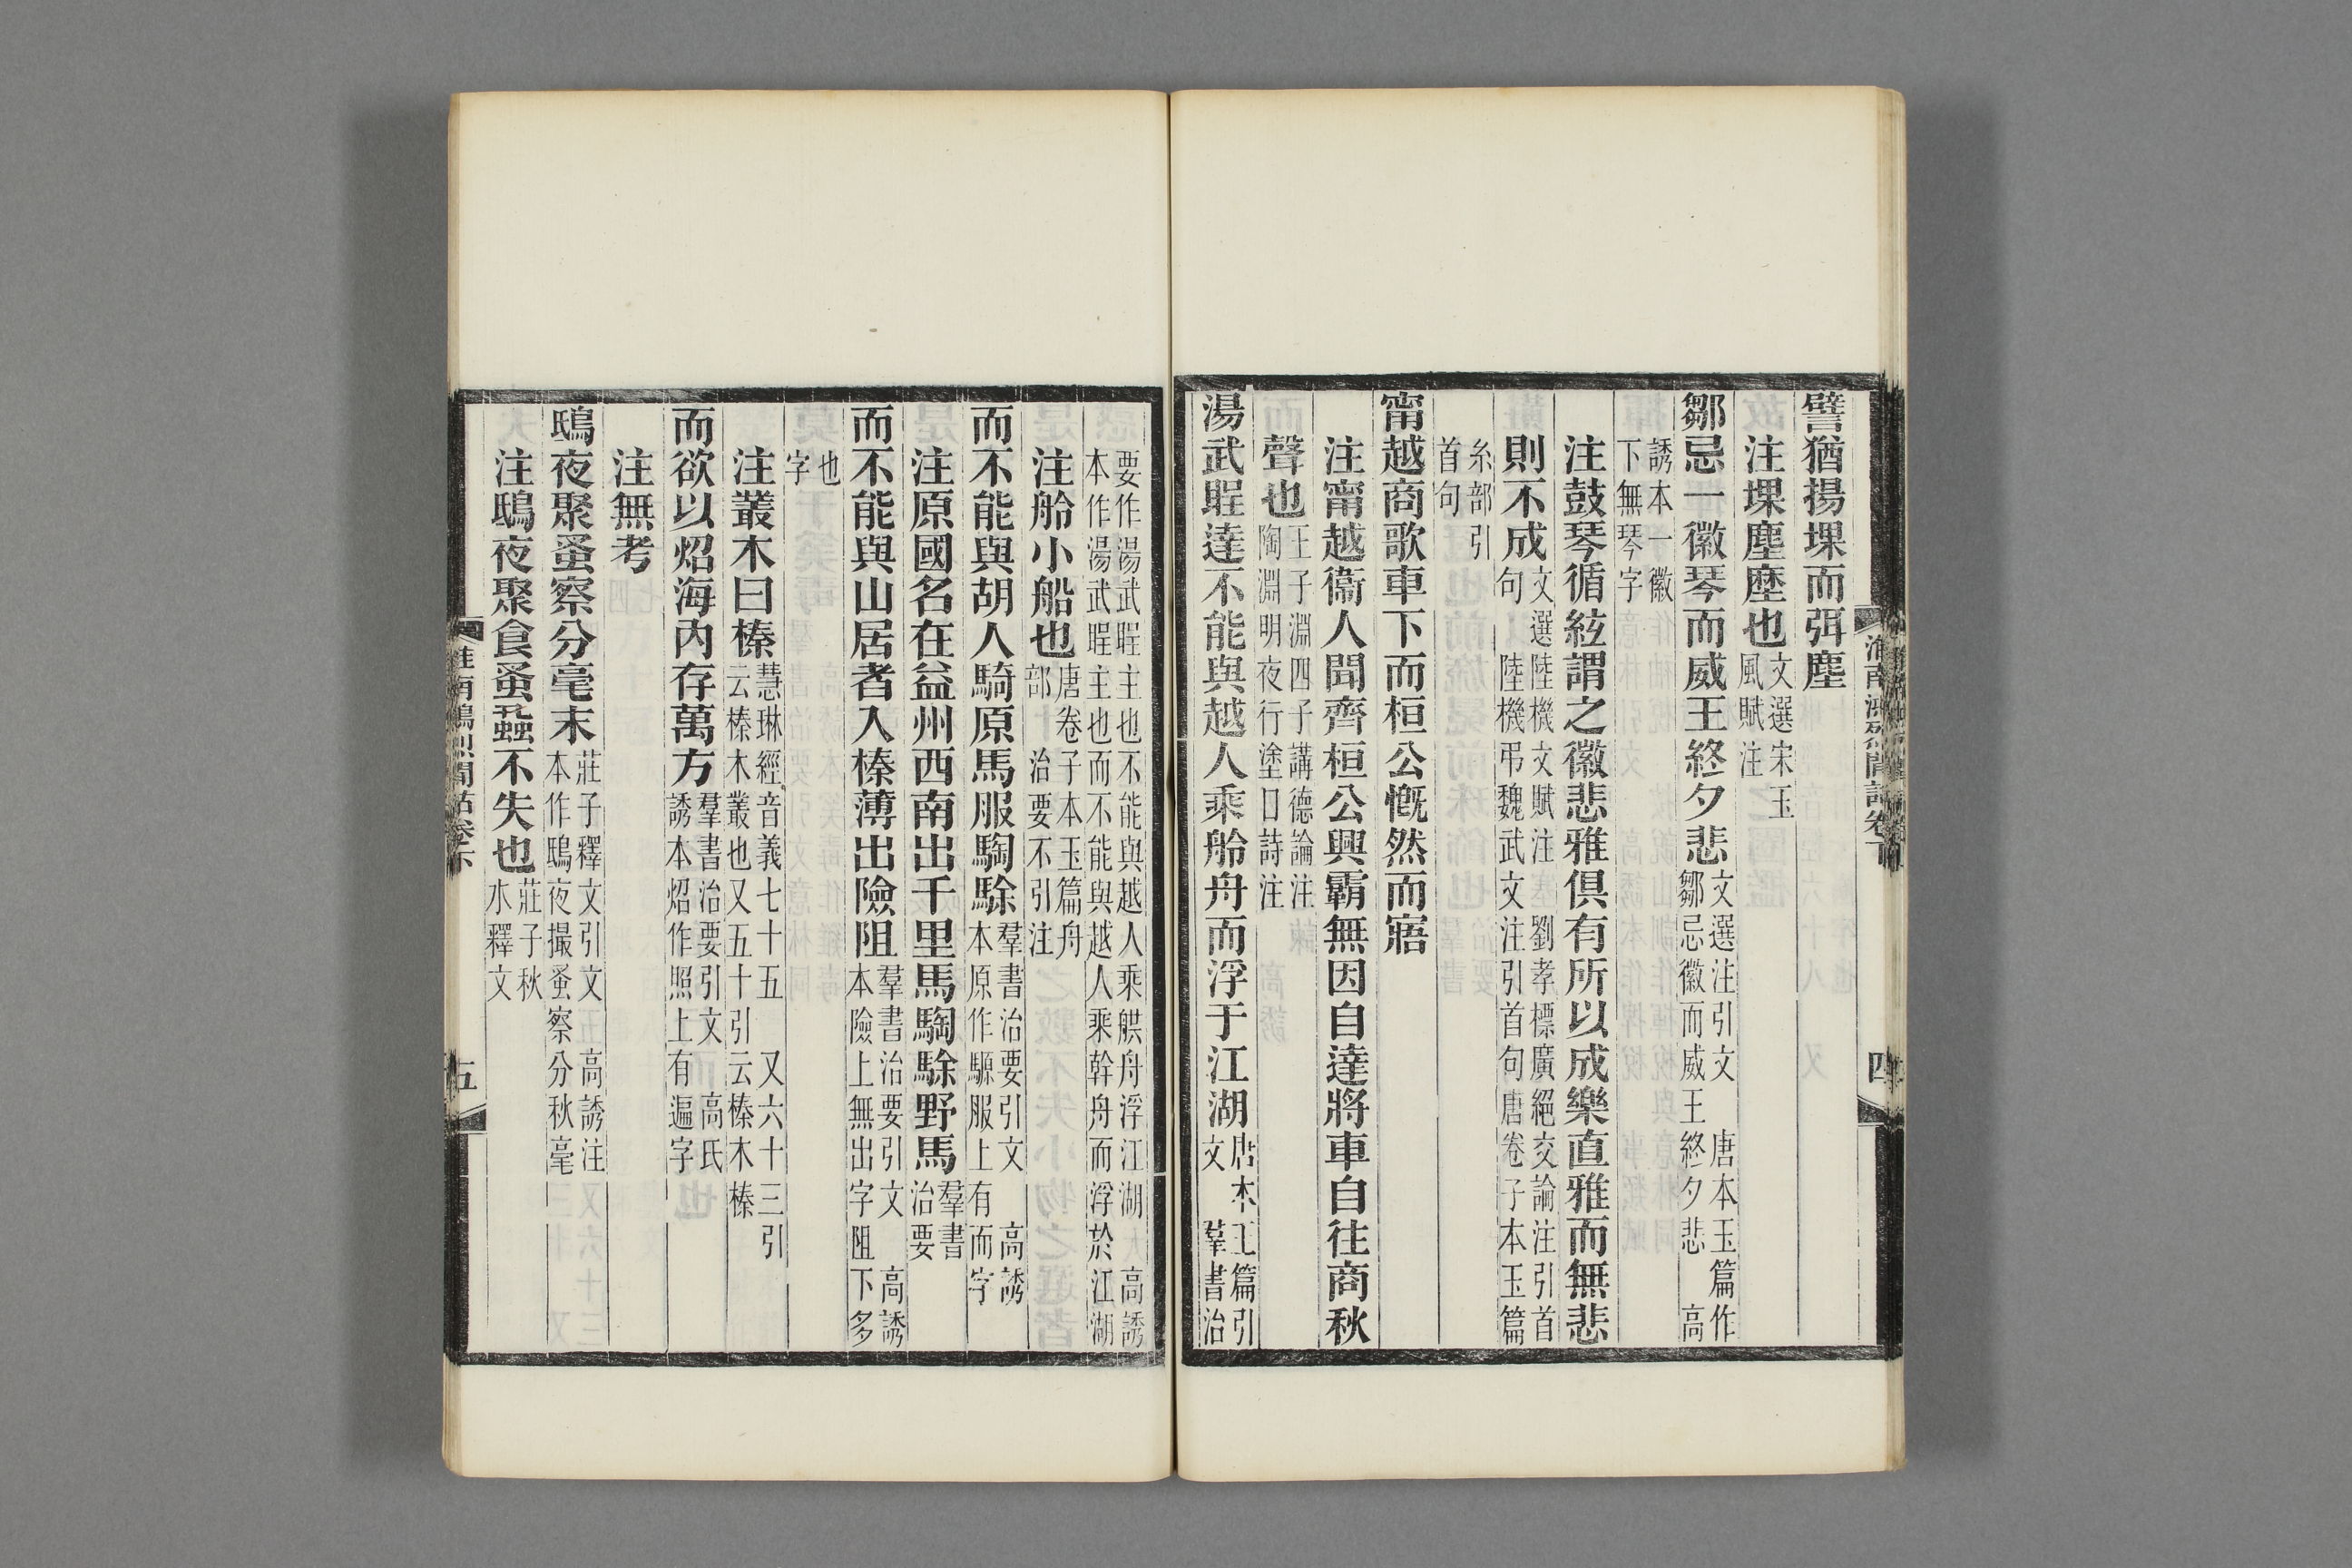 譬猶揚堁而弭塵
注堁塵壓也文選宋玉風賦注
鄒忌一徽琴而威王終夕悲文選注引文鄒忌徽而威王終夕悲 唐本玉篇作高
誘本一徽下無琴字
注鼓琴循絃謂之徽悲雅俱有所以成樂直雅而無悲
則不成文選陸機文賦注 劉孝標廣絕交論注引首句 陸機弔魏武文注引首句唐卷子本玉篇
糸部引首句
甯越商歌車下而桓公慨然而寤
注甯越衞人聞齊桓公興霸無因自達將車自往商秋
聲也王子淵四子講德論注陶淵明夜行塗口詩注
湯武睲達不能與越人乘舲舟而浮于江湖唐本玉篇引文 羣書治
要作湯武睲主也不能與越人乘艓舟浮江湖 高誘本作湯武睲主也而不能與越人乘幹舟而浮於江湖
注舲小船也唐卷子本玉篇舟部 治要不引注
而不能與胡人騎原馬服騊駼羣書治要引文 高誘本原作騵服上有而字
注原國名在益州西南出千里馬騊駼野馬羣書治要
而不能與山居者入榛薄出險阻羣書治要引文 高誘本險上無出字阻下多
也字
注叢木曰榛慧琳經音義七十五 又六十三引云榛木叢也又五十引云榛木榛
而欲以炤海內存萬方羣書治要引文 高氏誘本炤作照上有遍字
注無考
鴟夜聚蚤察分毫末莊子釋文引文 高誘注本作鴟夜撮蚤察分秋毫
注鴟夜聚食蚤蝨不失也莊子秋水釋文
五